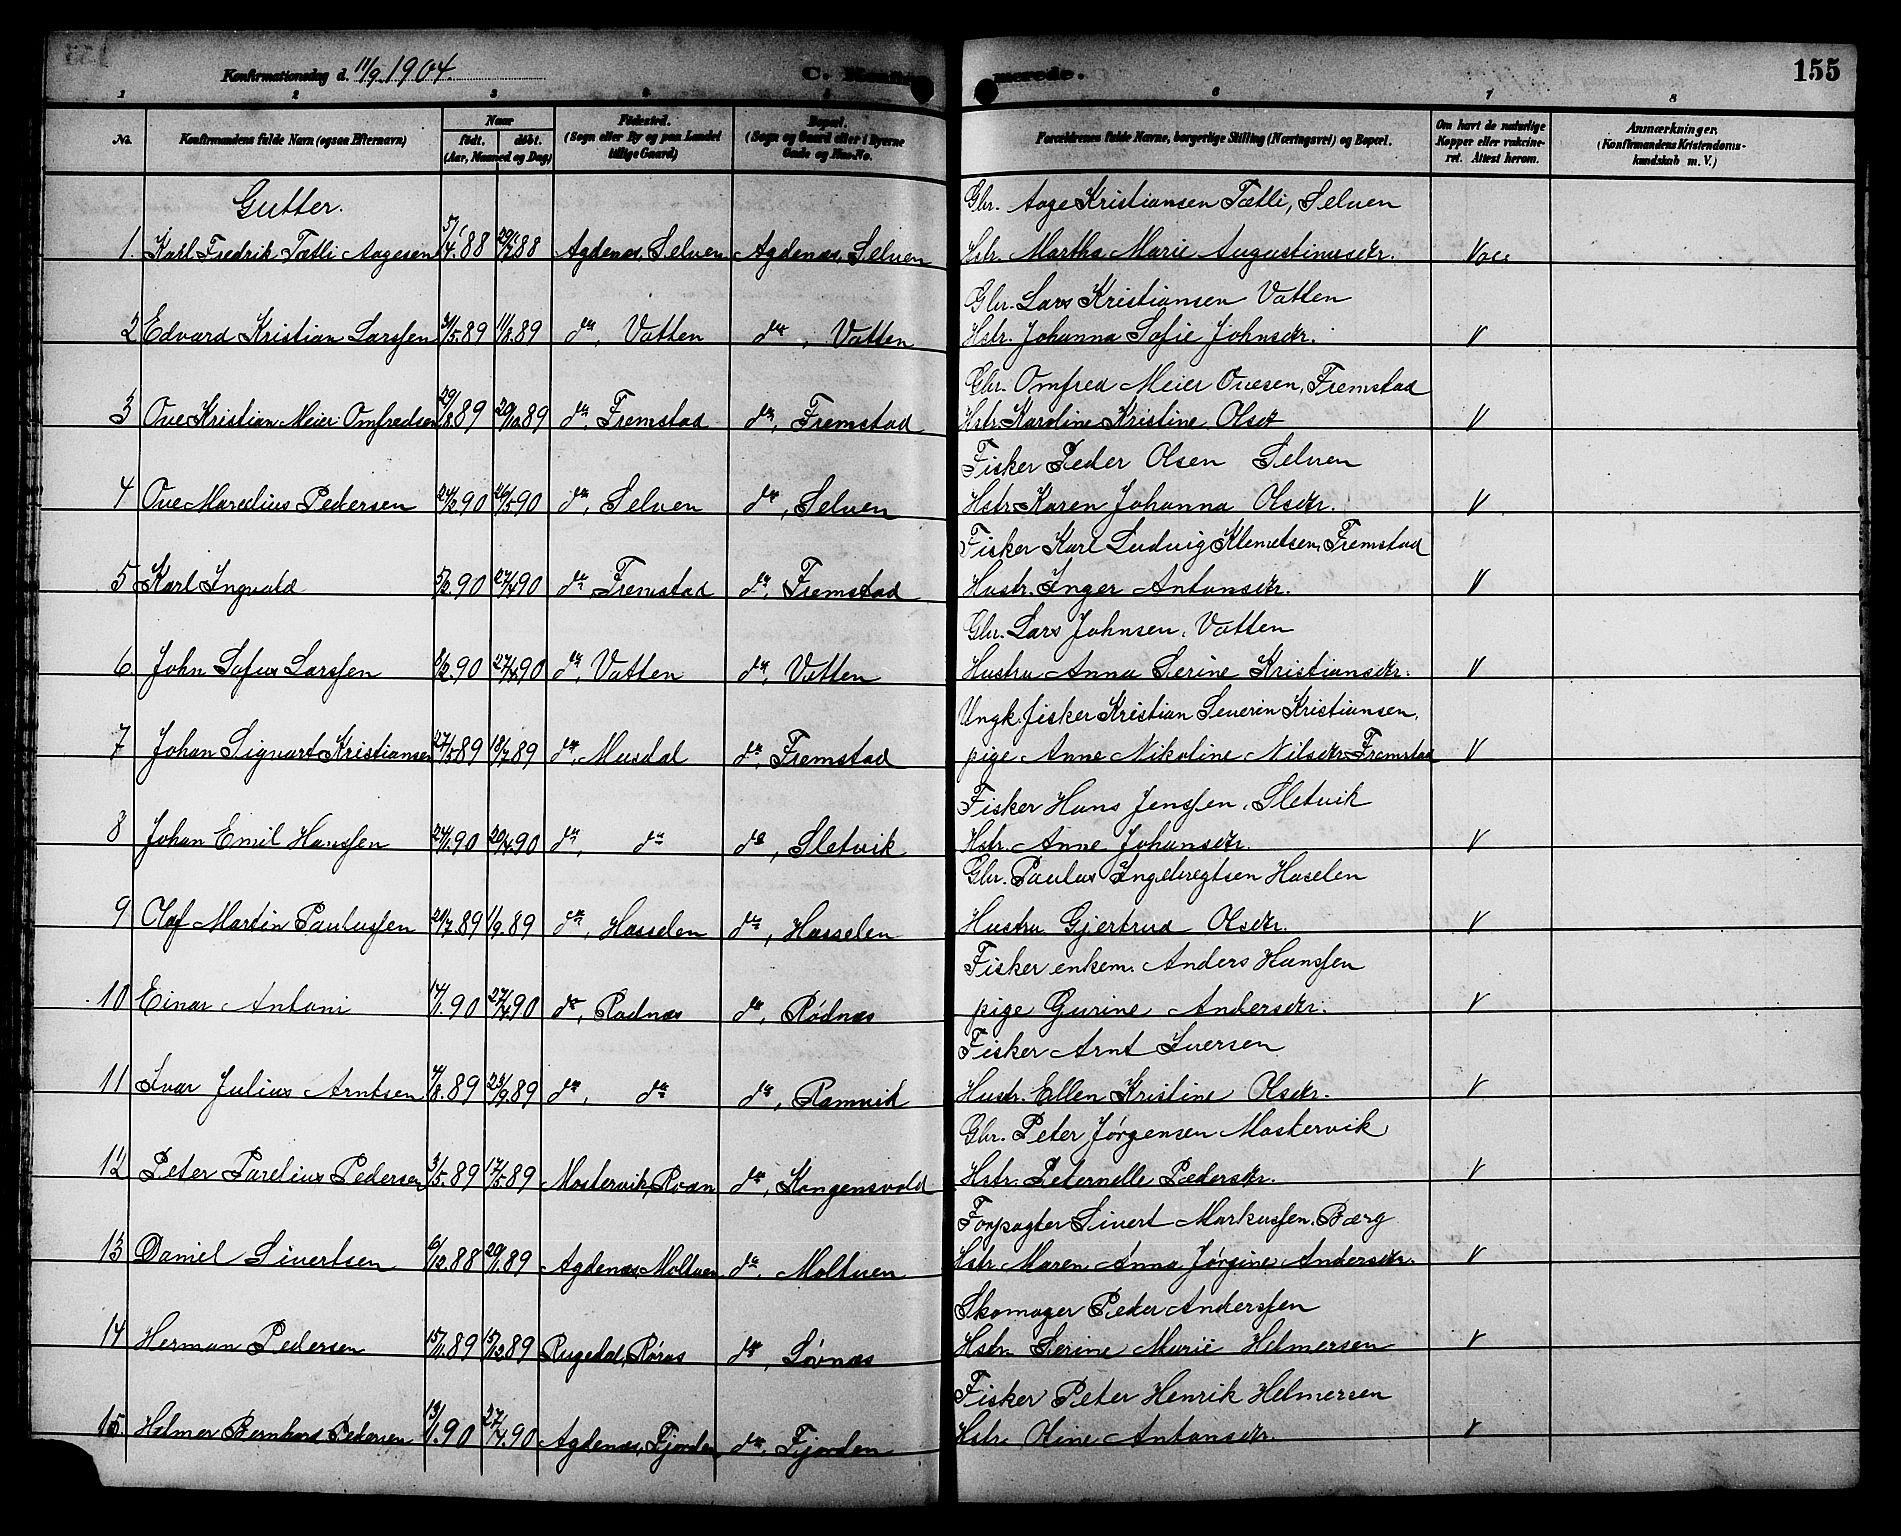 155
Konfirmationsdag d. 11/9 1904.
C. Konfirmerede.
1 2 3 4 5 6 7 8
No. Konfirmandens fulde Navn (ogsaa Efternavn) Naar født. døbt. (Aar, Maaned og Dag) Fødested. (Sogn eller By og paa Landet tillige Gaard) Bopæl. (Sogn og Gaard eller i Byerne Gade og Hus-No. Forældrenes fulde Navne, borgerlige Stilling (Næringsvei) og Bopæl. Om havt de naturlige Kopper eller vakcineret. Attest herom. Anmærkninger, (Konfirmandens Kristendomskundskab m. V.)
Gutter.
Gbr. Aage Kristiansen Tætli, Selven
1. Karl Fredrik Tætli Aagesen 88 88 Agdenæs, Selven Agdenæs, Selven Hstr. Martha Marie Augustinusdtr. Vacc
Gbr. Lars Kristiansen Vatten
2 Edvard Kristian Larssen 3/5.89 11/8.89 do, Vatten do, Vatten Hstr. Johanna Sofie Johnsdtr. V
Gbr. Omfred Meier Ovesen, Fremstad
3 Ove Kristian Meier Omfredsen 29/8.89 20/10.89 do, Fremstad do, Fremstad Hstr Karoline Kristine Olsdt V
Fisker Peder Olsen Selven
4 Ove Marelius Pedersen 24/2.90 26/5.90 do, Selven do, Selven Hstr. Karen Johanna Olsdtr. V
Fisker Karl Ludvig Klemetsen, Fremstad
5 Karl Ingvald 90 27/4.90 do Fremstad do, Fremstad Hustr. Inger Antonsdtr. V
Gbr. Lars Johnsen, Vatten
6. John Sofus Larssen 8/2.90 27/4.90 do, Vatten do, Vatten Hustru Anna Serine Kristiansdtr. V
Ungk. fisker Kristian Severin Kristiansen,
7 Johan Sigvart Kristiansen 27/5.89 18/7.89 do, Musdal do, Fremstad pige Anne Nikoline Nilsdtr. Fremstad V
Fisker Hans Jenssen, Sletvik
8 Johan Emil Hanssen 24/1.90 20/4.90 do, do do, Sletvik Hstr. Anne Johansdtr. V
Gbr. Paulus Ingebregtsen Haselen
9 Olaf Martin Paulussen 20/7.89 1/9.89 do, Hasselen do, Hasselen Hustru Gjertrud Olsdtr. V
Fisker enkem. Anders Hanssen
10 Einar Antoni 14/1.90 27/4.90 do, Rødnæs do, Rødnæs pige Gurine Andersdtr. V
Fisker Arnt Iversen
11 Ivar Julius Arntsen 4/8.89 23/9.89 do, do do, Ramvik Hustr. Ellen Kristine Olsdtr. V
Gbr. Peter Jørgensen Mastervik
12 Peter Parelius Pedersen 3/5.89 17/5.89 Mostervik, Roan do, Kongensvold Hstr. Peternelle Pedersdtr. V
Forpagter Sivert Markussen, Berg
13 Daniel Sivertsen 6/12.88 20/1.89 Agdenæs, Moltuen do, Moltuen Hstr. Maren Anna Jørgine Andersdtr. V
Skomager Peder Anderssen
14 Herman Pedersen 15/11.89 15/12.89 Rugedal, Røros do, Søvnæs Hstr. Serine Marie Helmersen V
Fisker Peter Henrik Helmersen
15. Helmer Bernhard Pedersen 13/1.90 27/4.90 Agdenæs, Fjorden do, Fjorden Hstr. Oline Antonsdtr. V